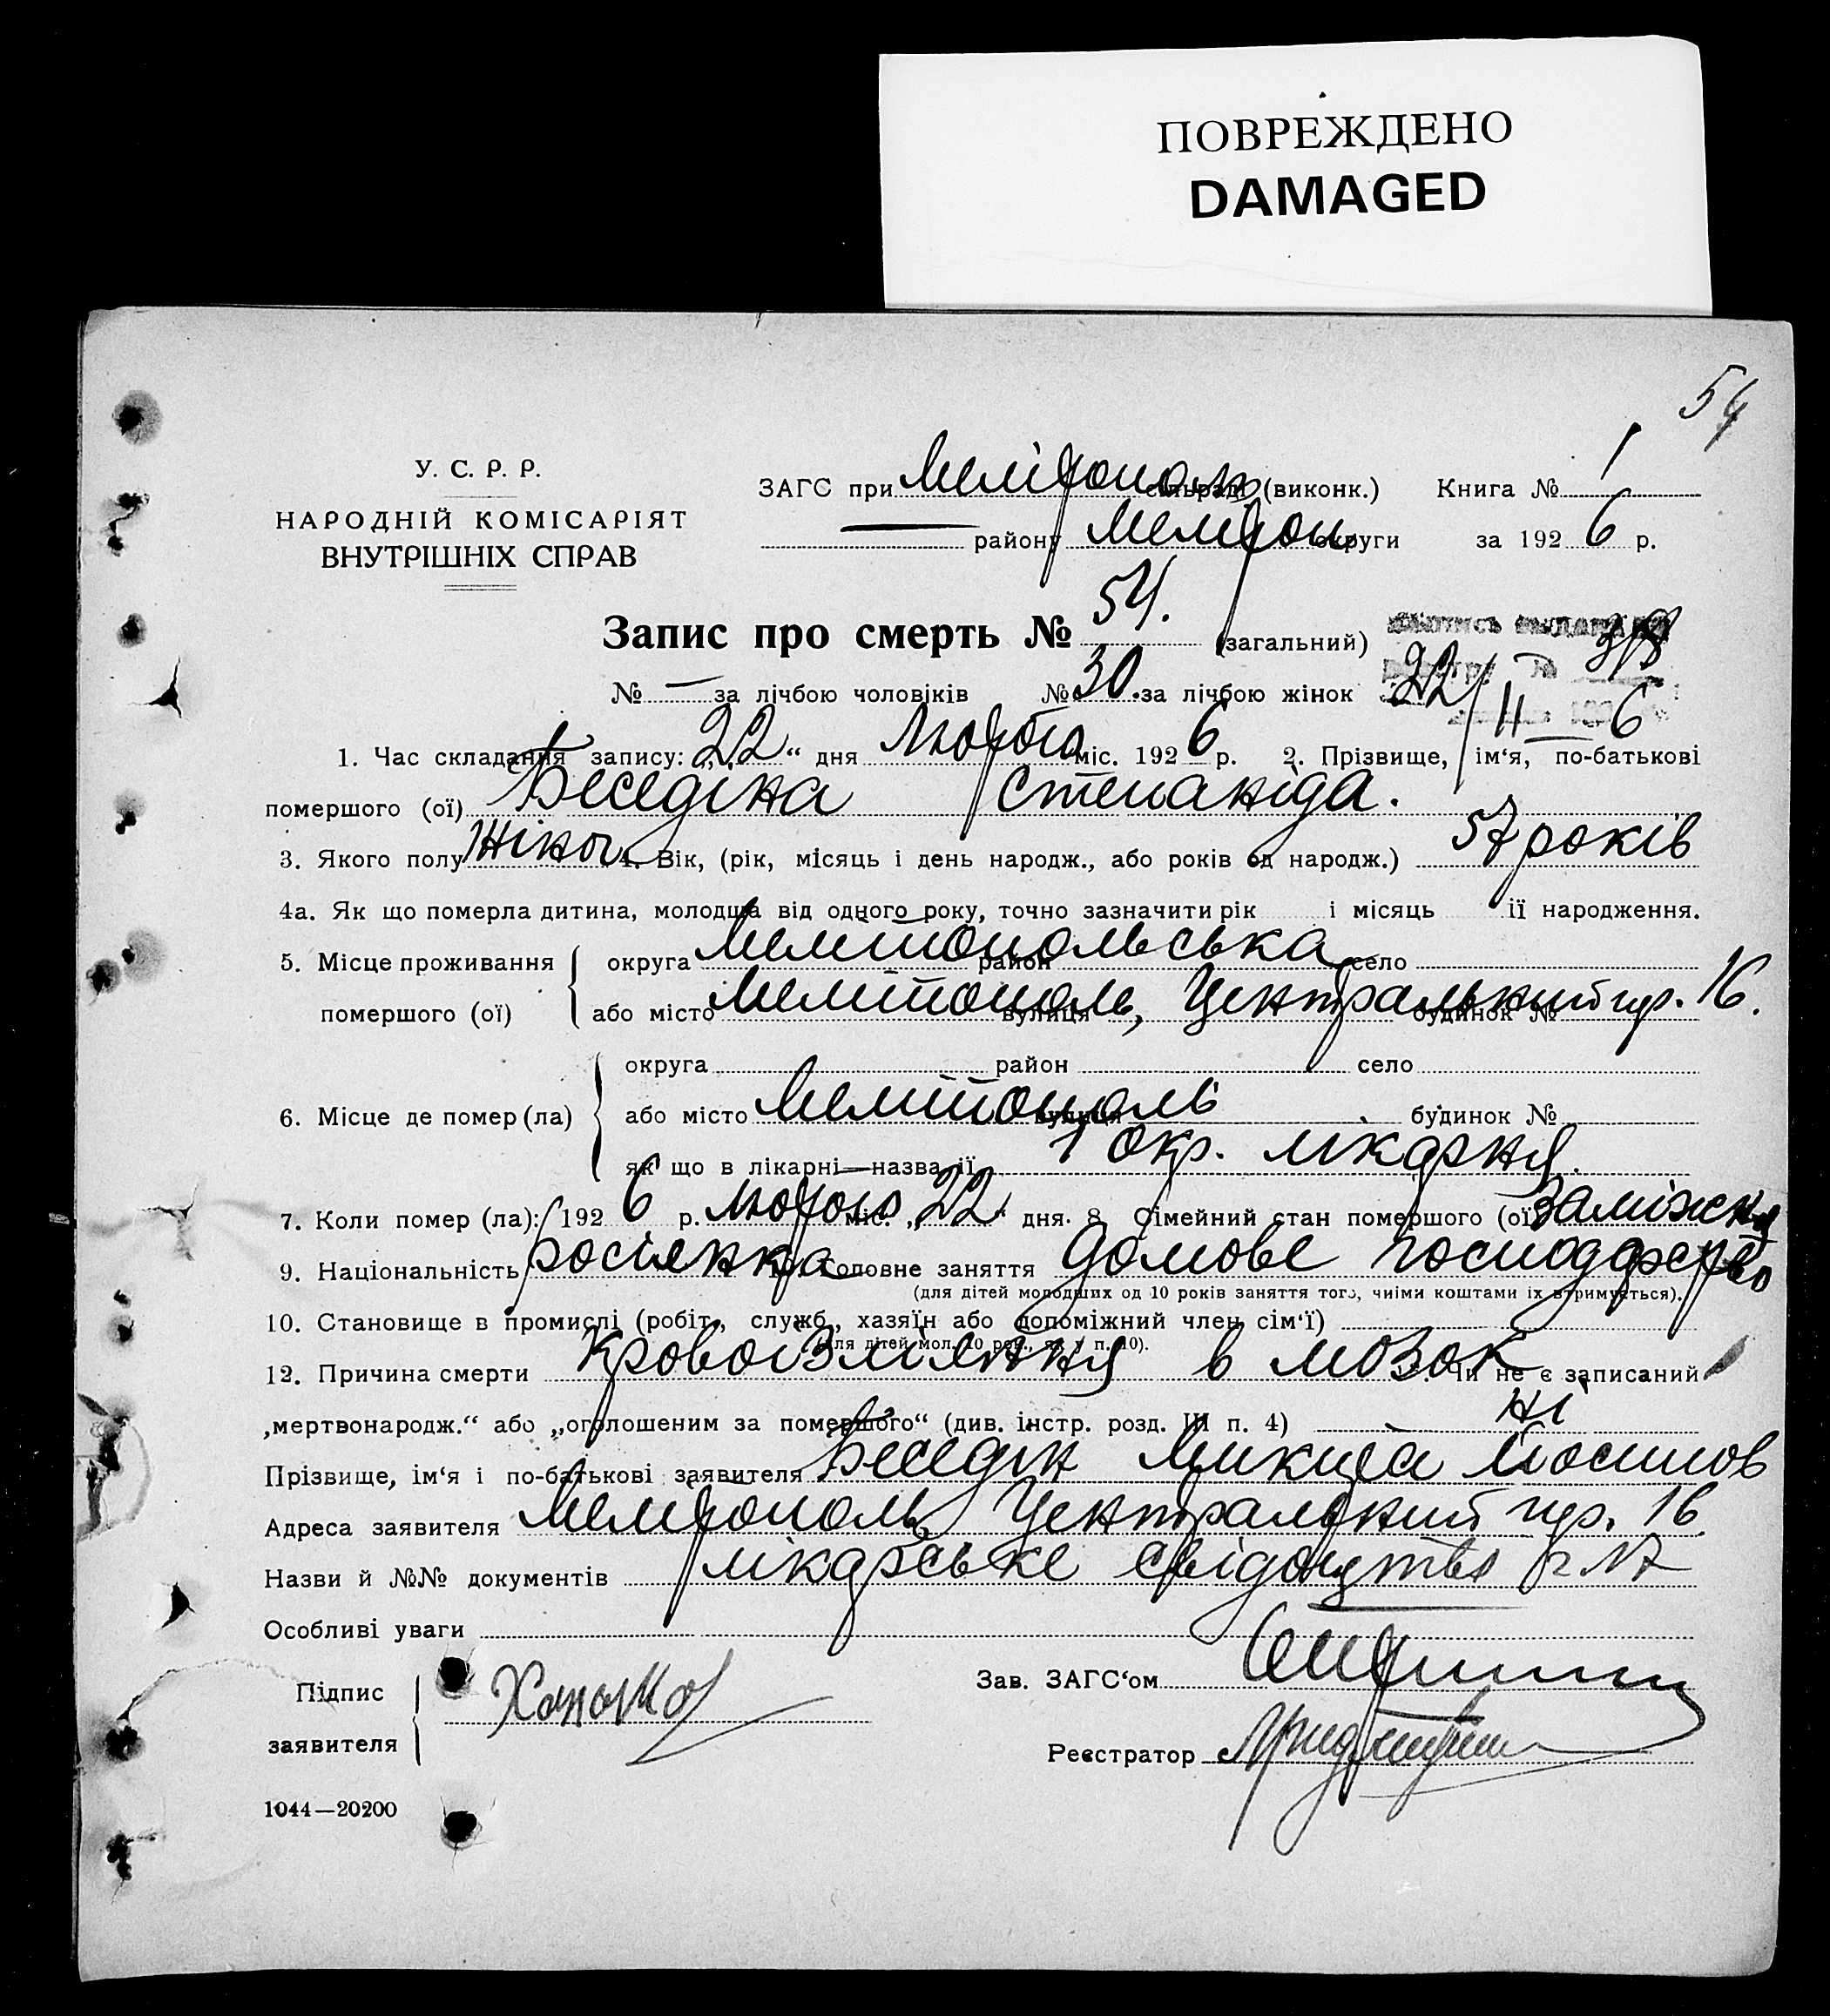 ПОВРЕЖДЕНО
DAMAGED
54
У. С. Р. Р.
НАРОДНІЙ КОМІСАРІЯТ
ВНУТРІШНІХ СПРАВ
ЗАГС при Мелітополь сільраді (виконк.) Книга № 1
— району Мелітоп округи за 1926 р.
Запис про смерть № 54. (загальний)
№ — за лічбою чоловіків № 30. за лічбою жінок 22/II 6
1. Час складання запису: „22“ дня Лютого міс. 1926 р. 2. Прізвище, ім‘я, по-батькові
помершого (ої) Беседіна Степаніда.
3. Якого полу Жіноч. 4. Вік, (рік, місяць і день народж., або років од народж.) 57 років
4а. Як що померла дитина, молодша від одного року, точно зазначити рік і місяць її народження.
5. Місце проживання помершого (ої) округа Мелітопольська район село
або місто Мелітополь, вулиця Центральний пр. будинок № 16.
6. Місце де помер (ла) округа район село
або місто Мелітополь вулиця будинок №
як що в лікарні—назва її 1 Окр. лікарня.
7. Коли помер (ла): 1926 р. Лютого міс. „22“ дня. 8. Сімейний стан помершого (ої) Заміжня
9. Національність росіянка головне заняття домове господарство
(для дітей молодших од 10 років заняття того, чиїми коштами їх втримується).
10. Становище в промислі (робіт., служб., хазяїн або допоміжний член сім‘ї)
(для дітей мол. 10 рок., як у п. 10).
12. Причина смерти Кровоізліяння в мозок. Чи не є записаний
„мертвонародж.“ або „оголошеним за помершого“ (див. інстр. розд. III п. 4) Ні
Прізвище, ім‘я і по-батькові заявителя Беседін Микита Йосипов
Адреса заявителя Мелітополь Центральний пр. 16
Назви й №№ документів лікарське свідоцтво
Особливі уваги
Підпис заявителя
Зав. ЗАГС‘ом
Реєстратор
1044—20200